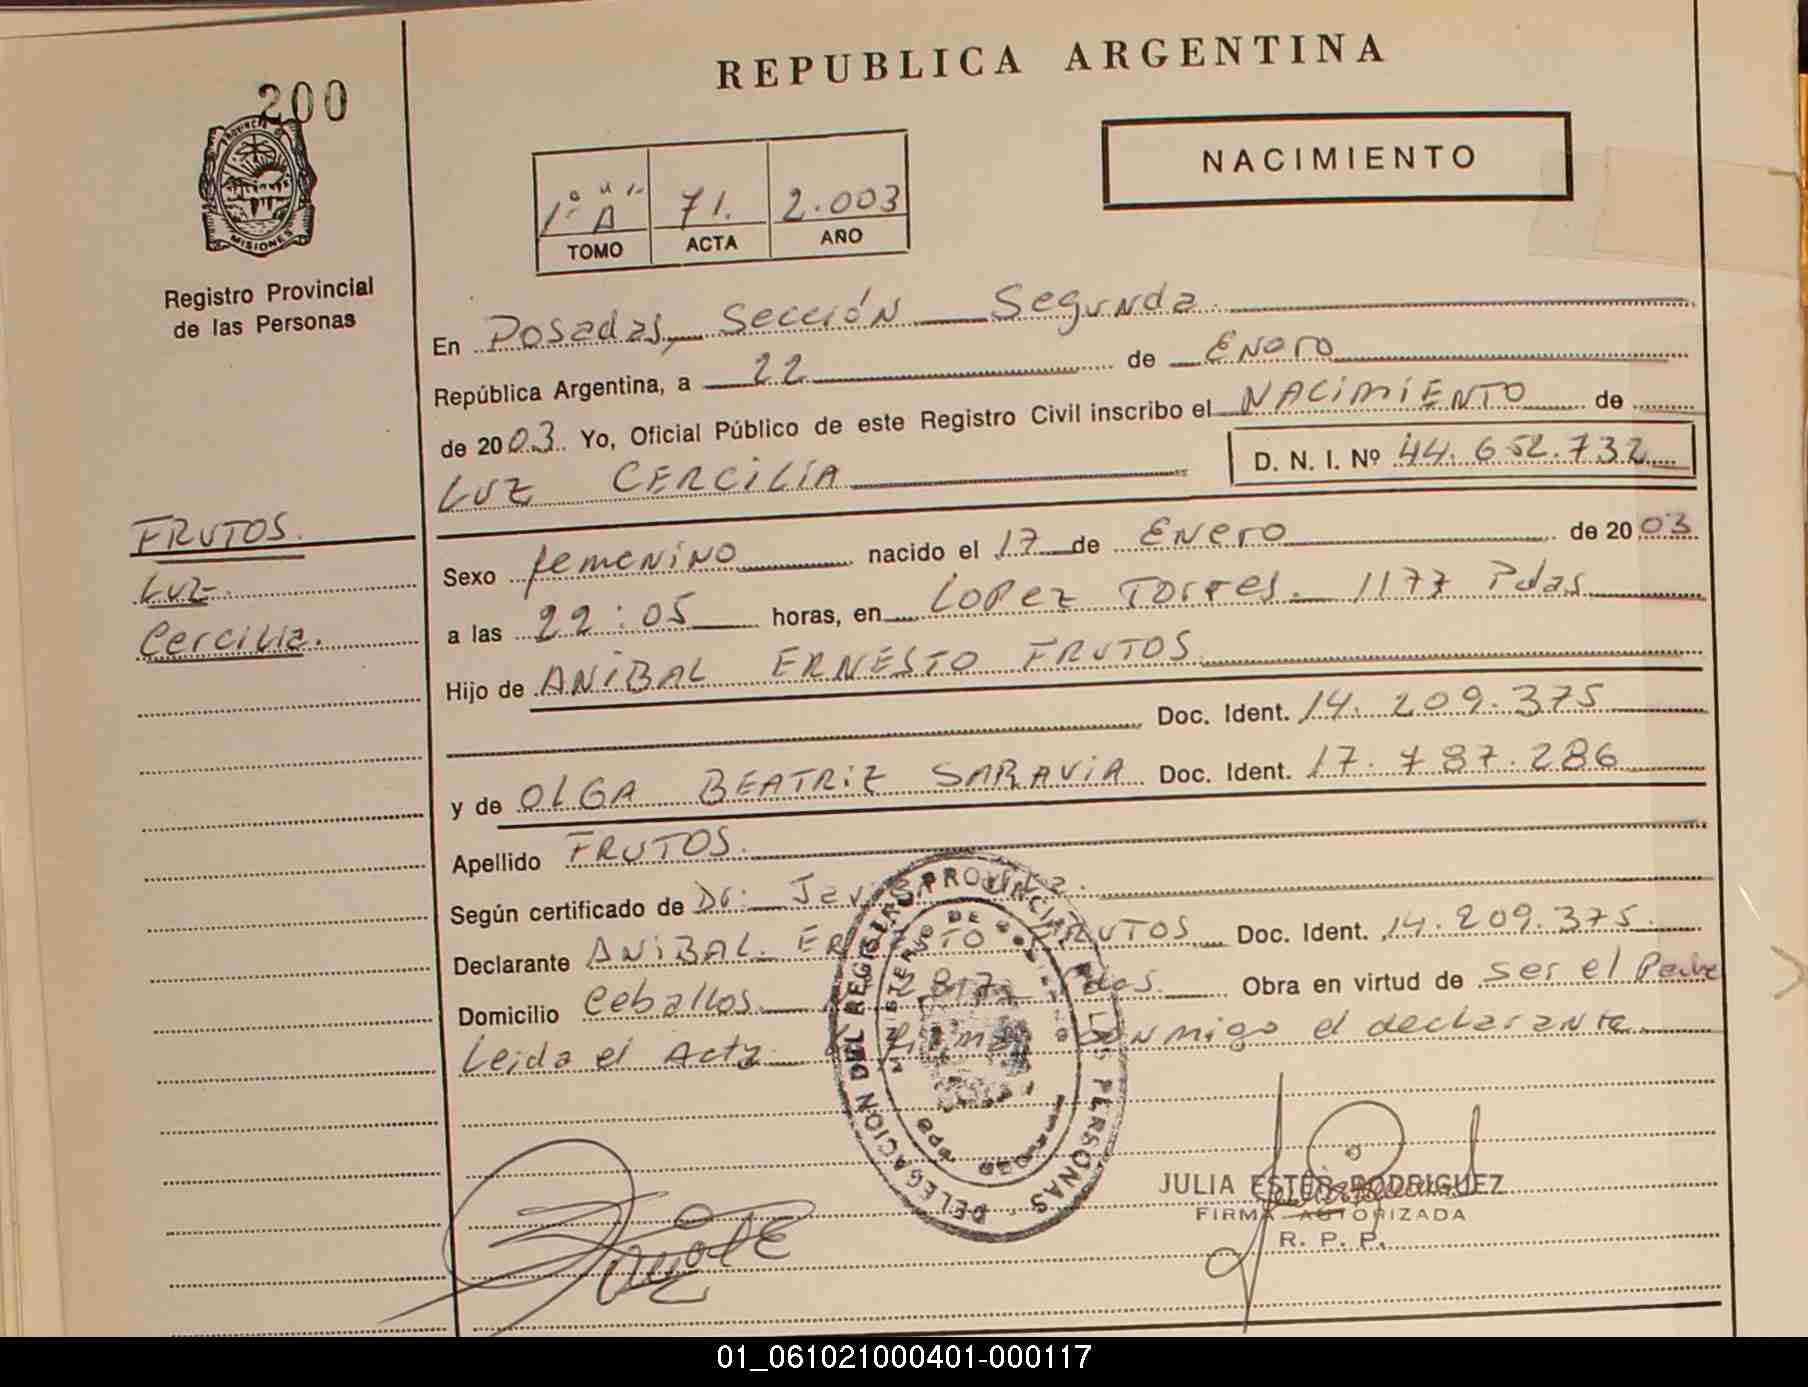 200
REPUBLICA ARGENTINA
NACIMIENTO
PROVINCIA DE
MISIONES
Registro Provincial
de las Personas
1º "A" 71. 2.003
TOMO ACTA AÑO
En Posadas, Sección Segunda
República Argentina, a 22 de Enero
de 2003. Yo, Oficial Público de este Registro Civil inscribo el NACIMIENTO de
LUZ CERCILIA D. N. I. Nº 44.652.732
FRUTOS.
Luz
Cercilia.
Sexo femenino nacido el 17 de Enero de 2003
a las 22:05 horas, en Lopez Torres. 1177 Pdas
Hijo de ANIBAL ERNESTO FRUTOS
Doc. Ident. 14.209.375
y de OLGA BEATRIZ SARAVIA Doc. Ident. 17.787.286
Apellido FRUTOS.
Según certificado de Dr.
Declarante ANIBAL ERNESTO FRUTOS Doc. Ident. 14.209.375.
Domicilio Ceballos 2817 Pdas. Obra en virtud de ser el Padre
Leida el Acta firma conmigo el declarante
DELEGACION DEL REGISTRO PROVINCIAL DE LAS PERSONAS
MINISTERIO DE GOBIERNO
JULIA ESTER RODRIGUEZ
FIRMA AUTORIZADA
R. P. P.
01_061021000401-000117